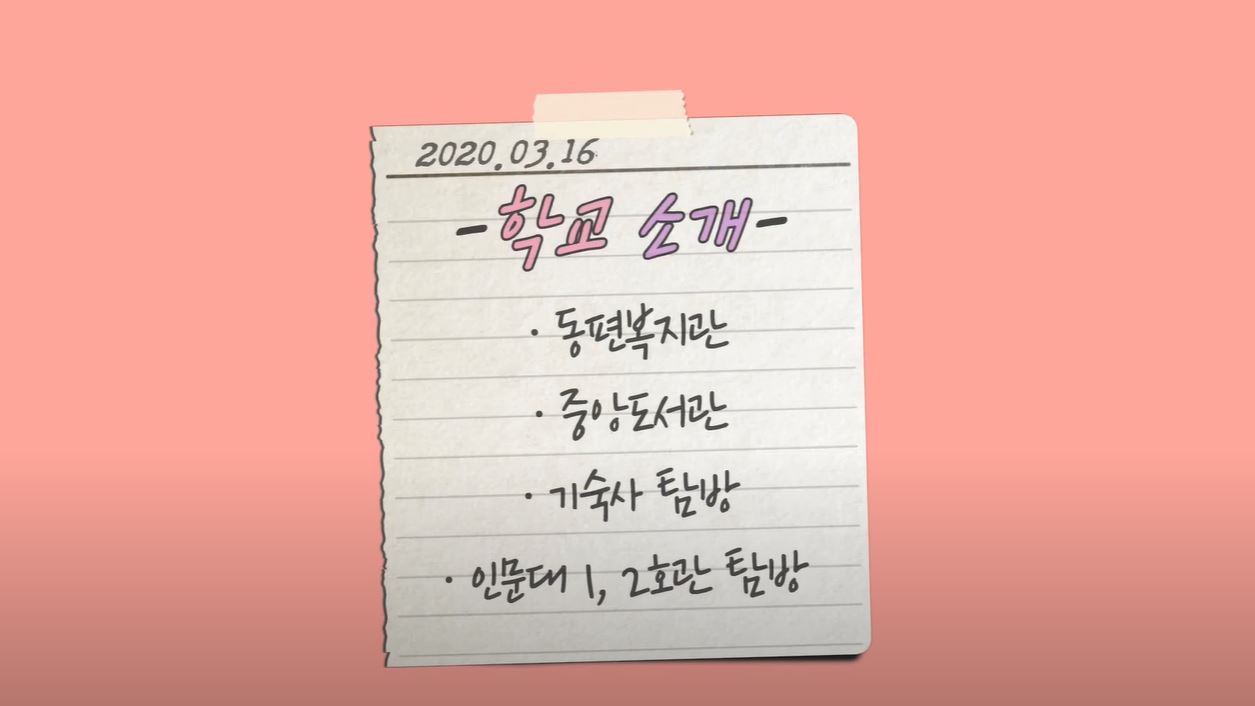 2020.03.16
-학교 소개-
· 동편복지관
· 중앙도서관
· 기숙사 탐방
· 인문대 1, 2호관 탐방